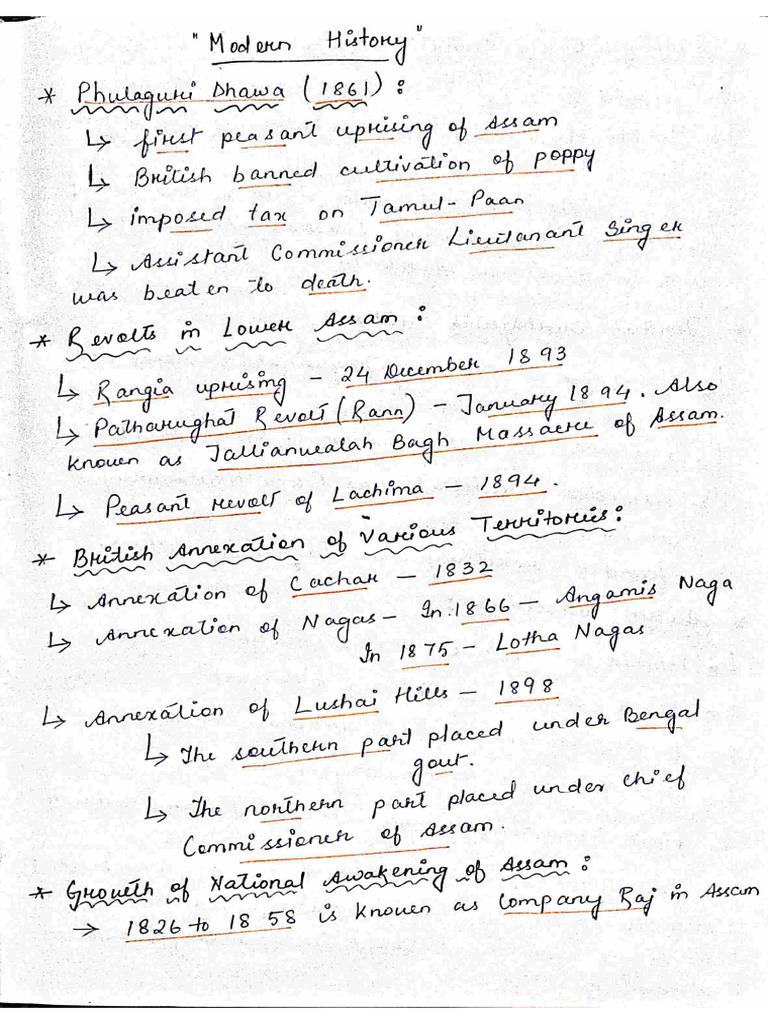 "Modern History"
* Phulaguri Dhawa (1861) :
↳ first peasant uprising of Assam
↳ British banned cultivation of poppy
↳ imposed tax on Tamul-Paan
↳ Assistant Commissioner Lieutanant Singer
was beaten to death.
* Revolts in Lower Assam :
↳ Rangia uprising - 24 December 1893
↳ Patharughat Revolt (Rann) - January 1894. Also
known as Jallianwalah Bagh Massacre of Assam.
↳ Peasant revolt of Lachima - 1894.
* British Annexation of Various Territories :
↳ Annexation of Cachar - 1832
↳ Annexation of Nagas - In 1866 - Angamis Naga
In 1875 - Lotha Nagas
↳ Annexation of Lushai Hills - 1898
↳ The southern part placed under Bengal
govt.
↳ The northern part placed under chief
Commissioner of Assam.
* Growth of National Awakening of Assam :
→ 1826 to 1858 is known as Company Raj in Assam